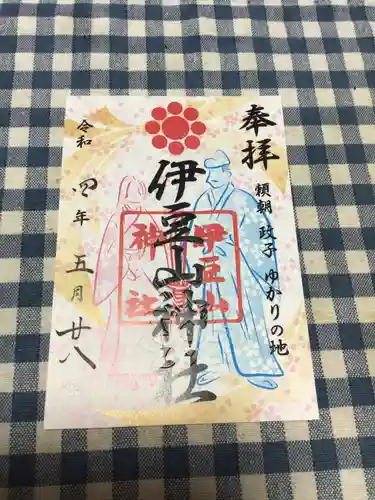 奉拝
頼朝 政子 ゆかりの地
伊豆山神社
伊豆山
神社
令和
四年
五月
廿八